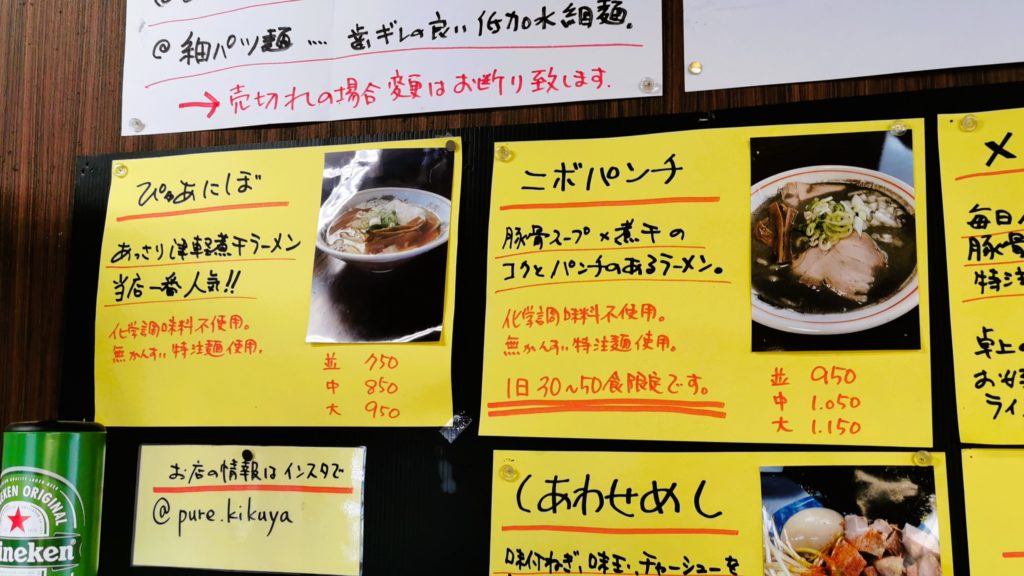 @ 細パツ麺 .... 歯ギレの良い低加水細麺。
→ 売切れの場合変更はお断り致します.
ぴゅあにぼ
あっさり津軽煮干ラーメン
当店一番人気!!
化学調味料不使用。
無かんすい特注麺使用。
並 750
中 850
大 950
ニボパンチ
豚骨スープ×煮干の
コクとパンチのあるラーメン。
化学調味料不使用。
無かんすい特注麺使用。
1日30~50食限定です。
並 950
中 1.050
大 1.150
メ
毎日
豚骨
特注
卓上の
お好
ライ
お店の情報はインスタで
@pure.kikuya
しあわせめし
味付ねぎ、味玉、チャーシューを
KEN ORIGINAL
ineken